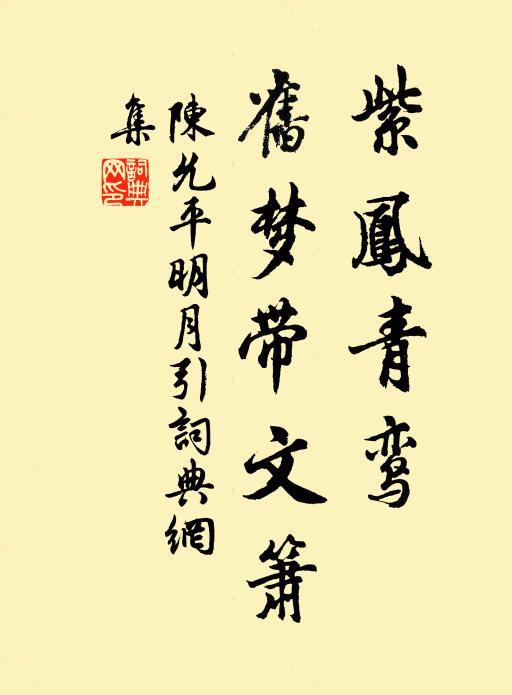 紫鳳青鸾
舊梦带文箫
陳允平明月引詞典網
集
詞典网印